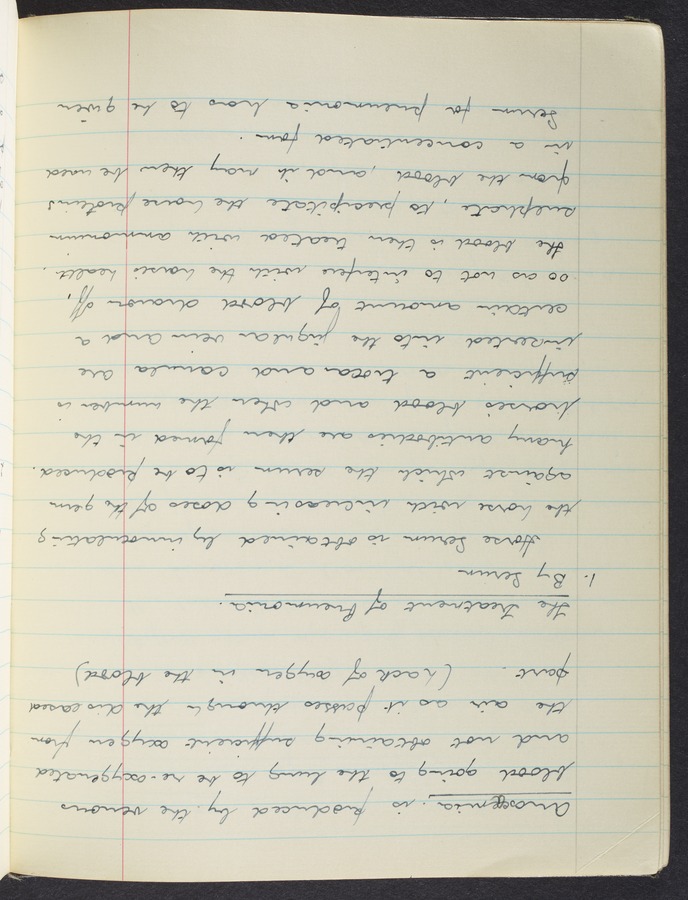 Anoxaemia. is produced by the venous
blood going to the lung to be re-oxygenated
and not obtaining sufficient oxygen from
the air as it passes through the diseased
part. (Lack of oxygen in the blood)
The Treatment of Pneumonia.
1. By Serum
Horse Serum is obtained by innoculating
the horse with increasing doses of the germ
against which the serum is to be produced.
Many antibodies are then formed in the
horses blood and when the number is
sufficient a trocar and canula are
inserted into the jugular vein and a
certain amount of blood drawn off,
so as not to interfere with the horses health.
the blood is then treated with ammonium
sulphate, to precipitate the horse proteins
from the blood, and it may then be used
in a concentrated form.
Serum for pneumonia has to be given